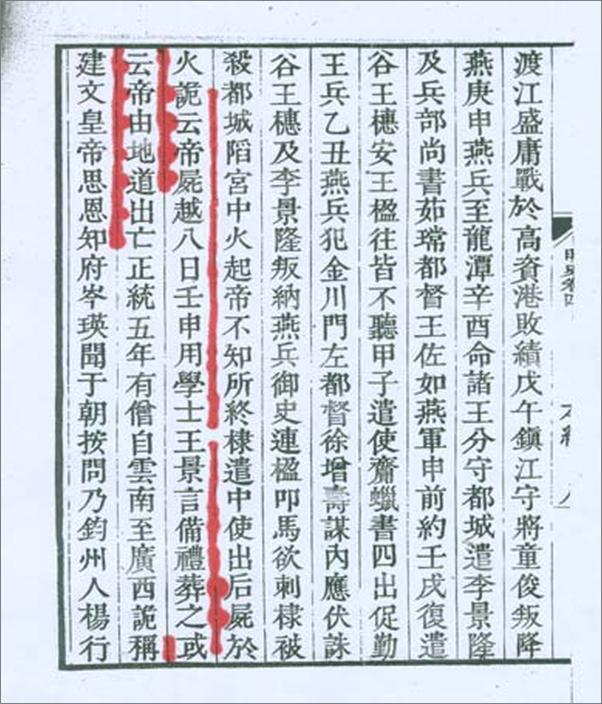 渡江盛庸戰於高資港敗績戊午鎮江守將童俊叛降
燕庚申燕兵至龍潭辛酉命諸王分守都城遣李景隆
及兵部尚書茹瑺都督王佐如燕軍申前約壬戌復遣
谷王橞安王楹往皆不聽甲子遣使齎蠟書四出促勤
王兵乙丑燕兵犯金川門左都督徐增壽謀內應伏誅
谷王橞及李景隆叛納燕兵御史連楹叩馬欲刺棣被
殺都城陷宮中火起帝不知所終棣遣中使出后屍於
火詭云帝屍越八日壬申用學士王景言備禮葬之或
云帝由地道出亡正統五年有僧自雲南至廣西詭稱
建文皇帝思恩知府岑瑛聞于朝按問乃鈞州人楊行